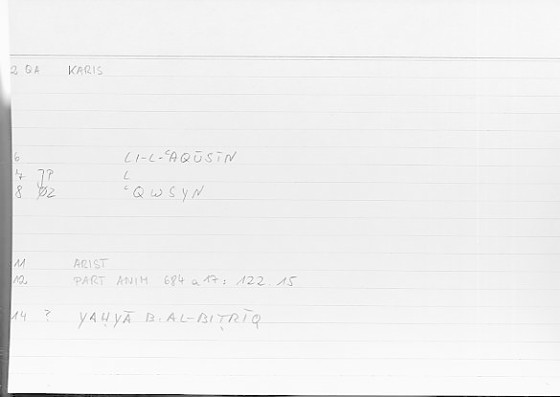 2 QA KARIS
6 LI-L-ʿAQŪSĪN
7 ]? L
8 ØZ ʿQWSYN
11 ARIST
12 PART ANIM 684 a 17: 122.15
14 ? YAḤYĀ B. AL-BIṬRĪQ